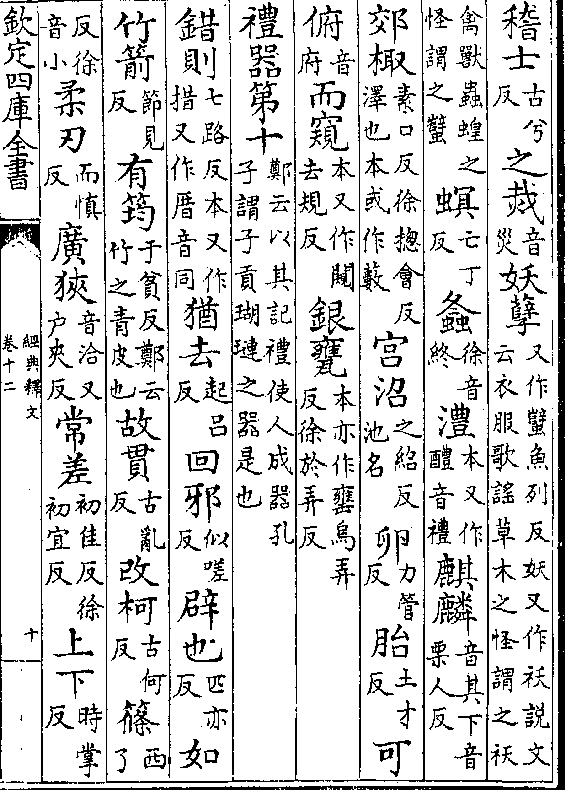 稽士古兮反之烖音災妖孽又作蠥魚列反妖又作䄏說文云衣服歌謠草木之怪謂之䄏
禽獸蟲蝗之怪謂之蠥螟亡丁反螽徐音終澧本又作醴音禮麒麟音其下音栗人反
郊棷素口反徐揔會反澤也本或作藪宫沼之紹反池名卵力管反胎土才反可
俯音府而窺本又作闚去規反銀甕本亦作罋烏弄反徐於弄反
禮器第十鄭云以其記禮使人成器孔子謂子貢瑚璉之器是也
錯則七路反本又作措又作厝音同猶去起吕反回邪似嗟反辟也匹亦反如
竹箭節見反有筠于貧反鄭云竹之青皮也故貫古亂反改柯古何反篠西了
反徐音小柔刃而慎反廣狹音洽又户夾反常差初佳反徐初宜反上下時掌反
欽定四庫全書
經典釋文
卷十二
十